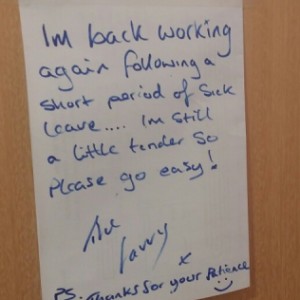 Im back working
again following a
short period of sick
leave.... Im still
a little tender so
please go easy!
The
Lavvy
x
PS. Thanks for your Patience